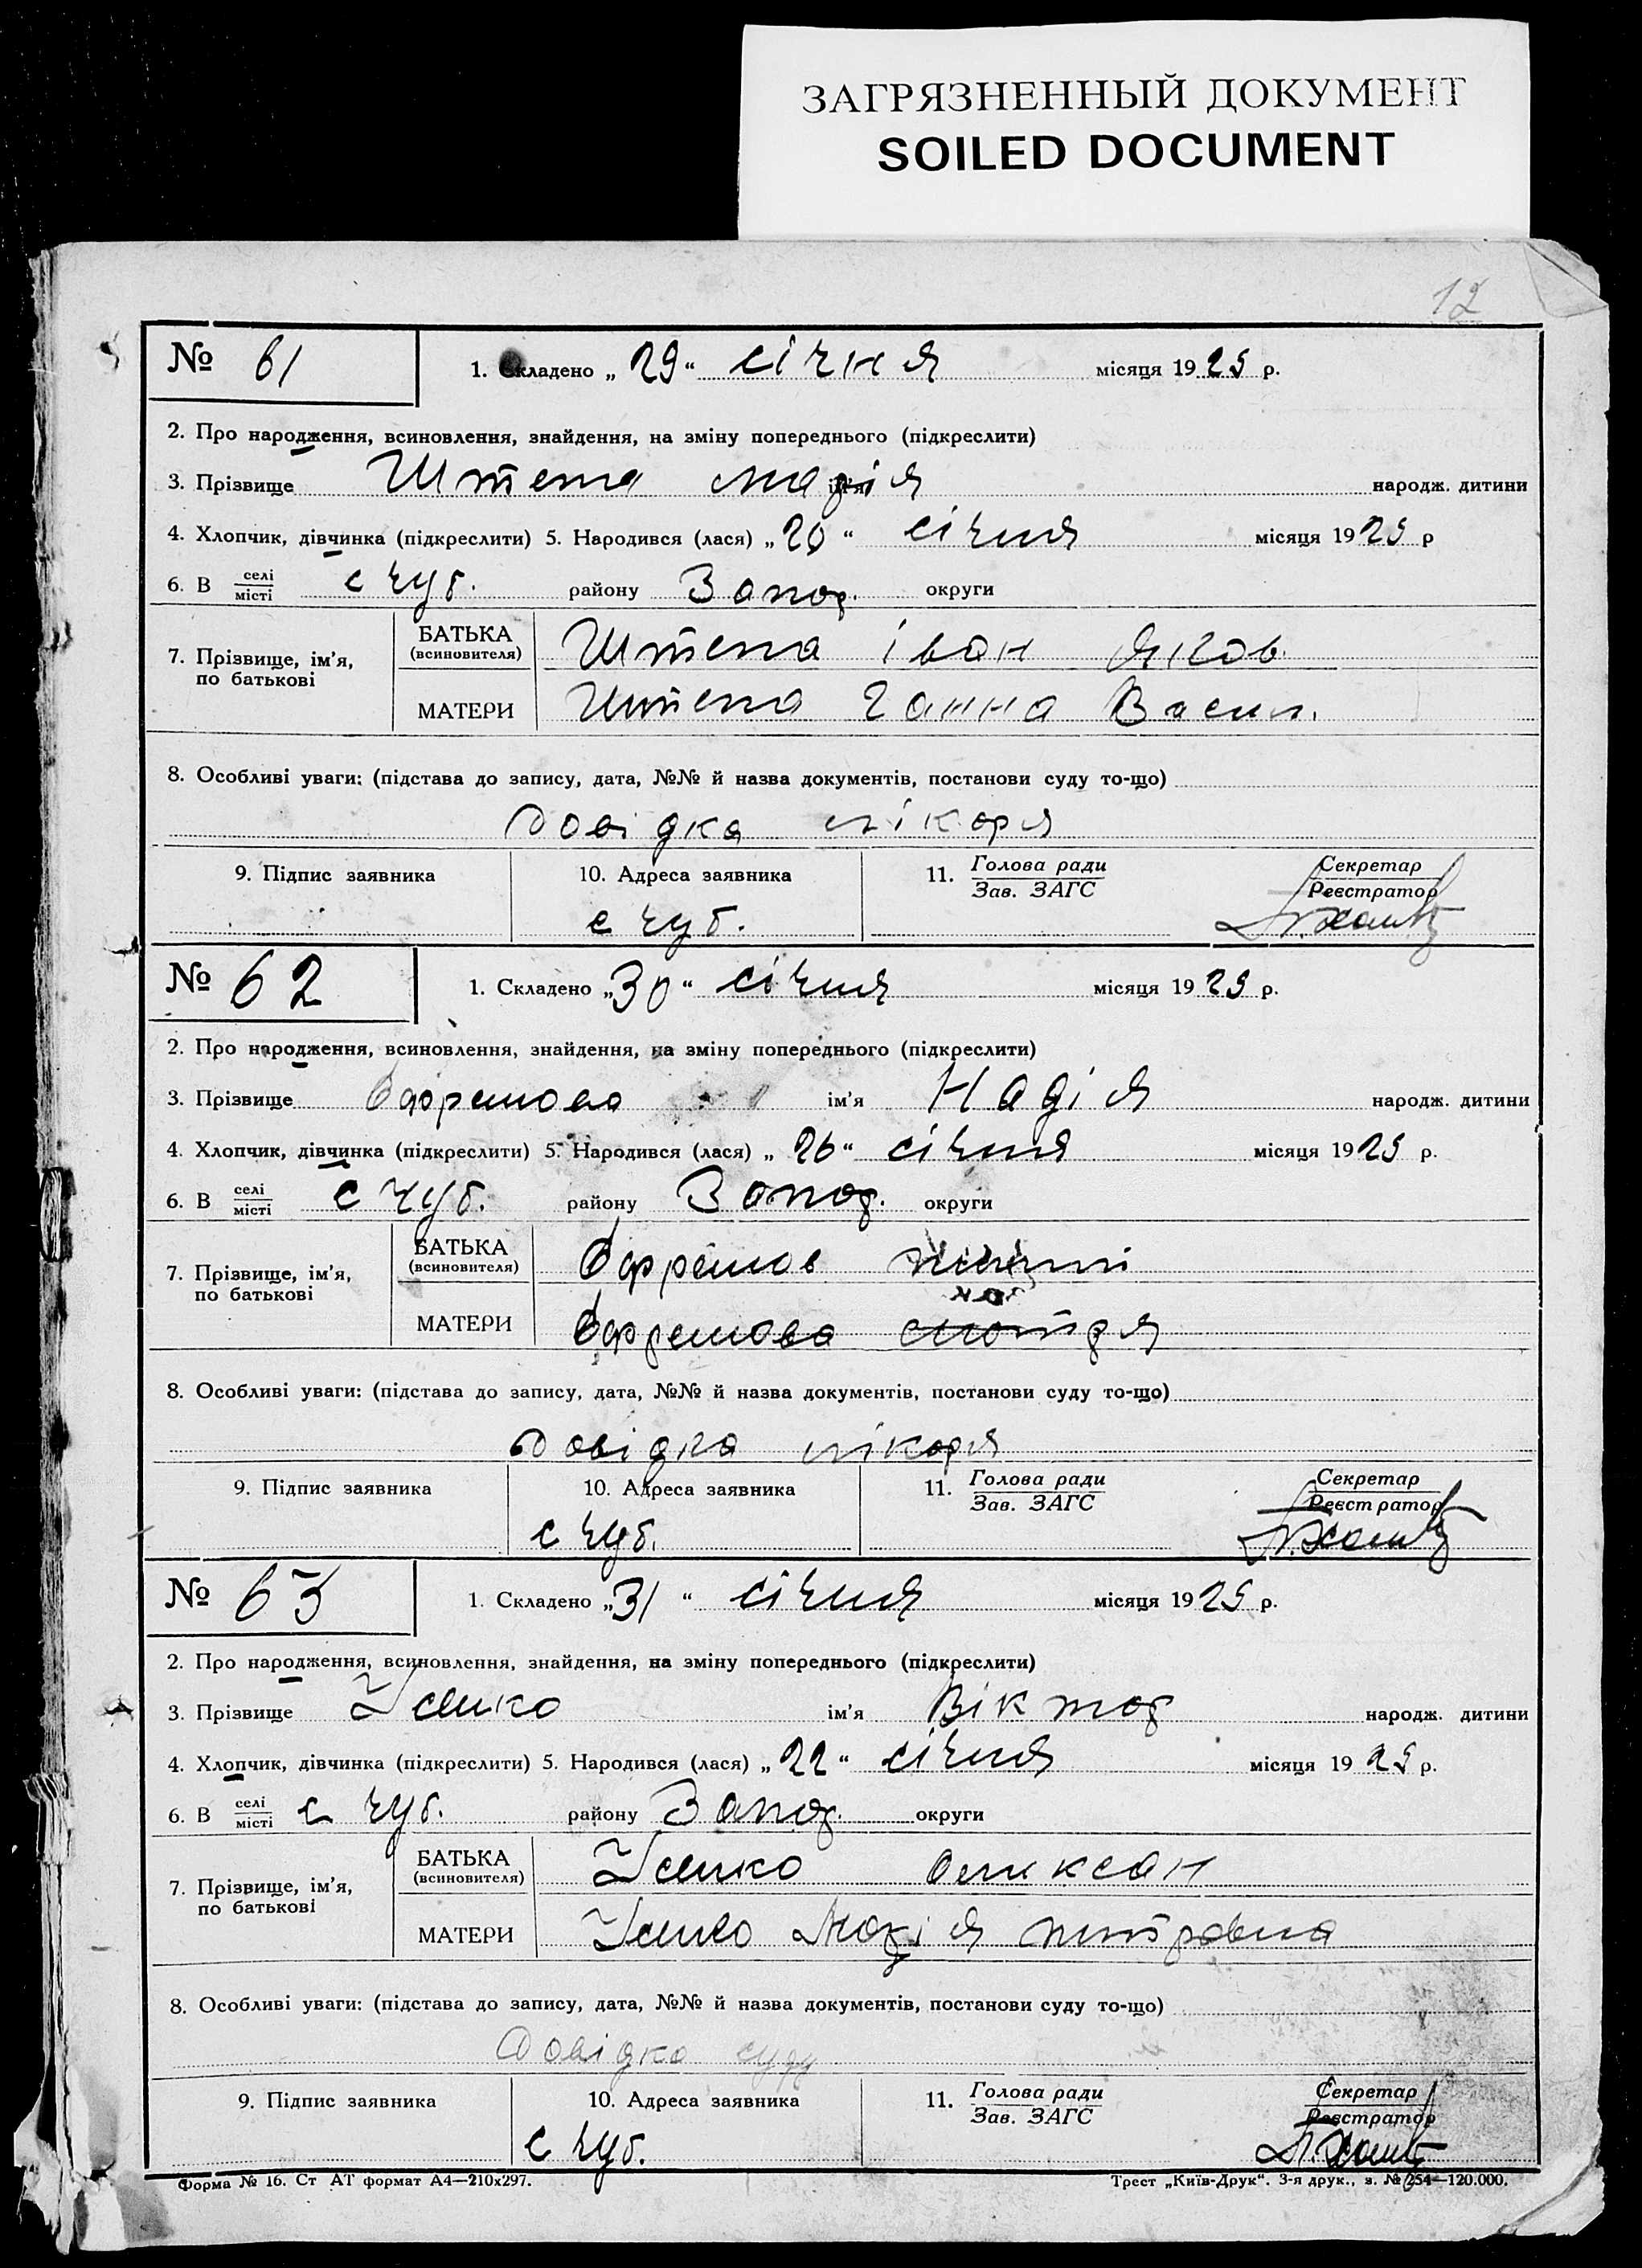 ЗАГРЯЗНЕННЫЙ ДОКУМЕНТ
SOILED DOCUMENT
12
№ 61 1. Складено „ 29 “ січня місяця 1925 р.
2. Про народження, всиновлення, знайдення, на зміну попереднього (підкреслити)
3. Прізвище Штепа Марія ім'я народж. дитини
4. Хлопчик, дівчинка (підкреслити) 5. Народився (лася) „ 20 “ січня місяця 1925 р
6. В селі місті с Чуб. району Запор. округи
7. Прізвище, ім'я, по батькові
БАТЬКА (всиновителя) Штепа Іван Яков.
МАТЕРИ Штепа Ганна Васил.
8. Особливі уваги: (підстава до запису, дата, №№ й назва документів, постанови суду то-що)
Довідка лікаря
9. Підпис заявника 10. Адреса заявника 11. Голова ради Секретар
Зав. ЗАГС Реєстратор
с Чуб.
№ 62 1. Складено „ 30 “ січня місяця 1925 р.
2. Про народження, всиновлення, знайдення, на зміну попереднього (підкреслити)
3. Прізвище Єфремова ім'я Надія народж. дитини
4. Хлопчик, дівчинка (підкреслити) 5. Народився (лася) „ 26 “ січня місяця 1925 р.
6. В селі місті с Чуб. району Запор. округи
7. Прізвище, ім'я, по батькові
БАТЬКА (всиновителя) Єфремов
МАТЕРИ Єфремова
8. Особливі уваги: (підстава до запису, дата, №№ й назва документів, постанови суду то-що)
Довідка лікаря
9. Підпис заявника 10. Адреса заявника 11. Голова ради Секретар
Зав. ЗАГС Реєстратор
с Чуб.
№ 63 1. Складено „ 31 “ січня місяця 1925 р.
2. Про народження, всиновлення, знайдення, на зміну попереднього (підкреслити)
3. Прізвище ім'я Віктор народж. дитини
4. Хлопчик, дівчинка (підкреслити) 5. Народився (лася) „ 22 “ січня місяця 1925 р.
6. В селі місті с Чуб. району Запор. округи
7. Прізвище, ім'я, по батькові
БАТЬКА (всиновителя) Олександ
МАТЕРИ Марія Питровна
8. Особливі уваги: (підстава до запису, дата, №№ й назва документів, постанови суду то-що)
Довідка суду
9. Підпис заявника 10. Адреса заявника 11. Голова ради Секретар
Зав. ЗАГС Реєстратор
с Чуб.
Форма № 16. Ст АТ формат А4—210x297. Трест „Київ-Друк“. 3-я друк., з. № 254—120.000.